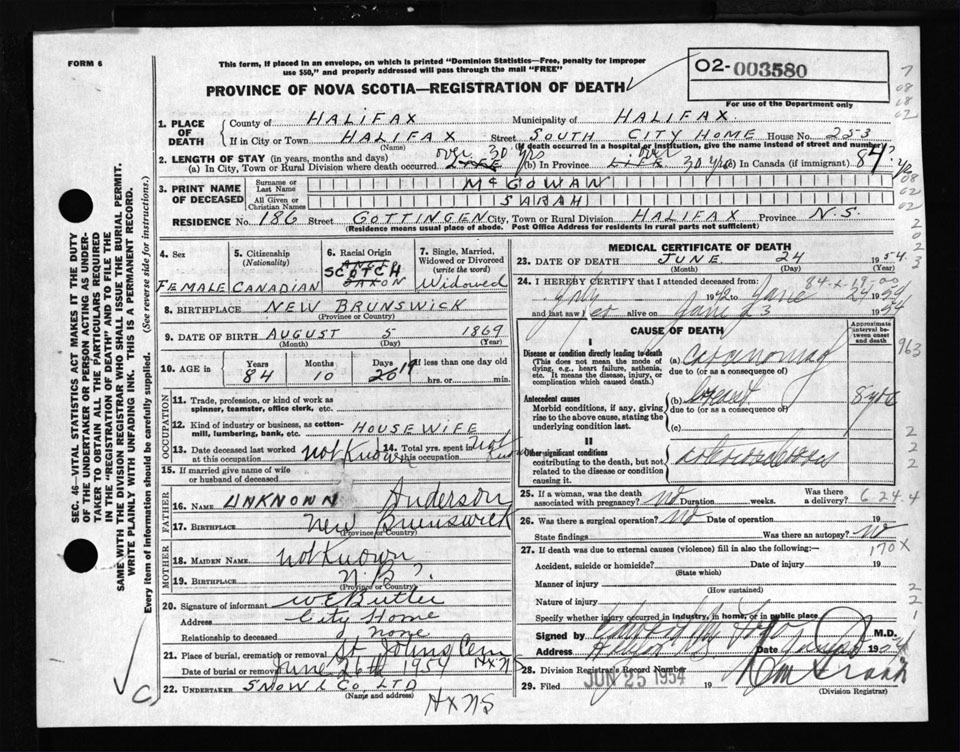 FORM 6
This form, if placed in an envelope, on which is printed "Dominion Statistics—Free, penalty for improper
use $50," and properly addressed will pass through the mail "FREE"
PROVINCE OF NOVA SCOTIA—REGISTRATION OF DEATH
02-003580
For use of the Department only
1. PLACE OF DEATH
County of HALIFAX Municipality of HALIFAX
If in City or Town HALIFAX Street SOUTH CITY HOME House No. 253
(Name) (If death occurred in a hospital or institution, give the name instead of street and number)
2. LENGTH OF STAY (in years, months and days)
(a) In City, Town or Rural Division where death occurred over 30 yrs (b) In Province over 30 yrs (c) In Canada (if immigrant) 84?
3. PRINT NAME OF DECEASED
Surname or Last Name McGOWAN
All Given or Christian Names SARAH
RESIDENCE No. 186 Street GOTTINGEN City, Town or Rural Division HALIFAX Province N.S.
(Residence means usual place of abode. Post Office Address for residents in rural parts not sufficient)
4. Sex
FEMALE
5. Citizenship (Nationality)
CANADIAN
6. Racial Origin
SCOTCH
7. Single, Married, Widowed or Divorced (write the word)
Widowed
8. BIRTHPLACE NEW BRUNSWICK
(Province or Country)
9. DATE OF BIRTH AUGUST 5 1869
(Month) (Day) (Year)
10. AGE in
Years 84
Months 10
Days 20 19
If less than one day old
hrs. or min.
OCCUPATION
11. Trade, profession, or kind of work as
spinner, teamster, office clerk, etc.
12. Kind of industry or business, as cotton-
mill, lumbering, bank, etc. HOUSEWIFE
13. Date deceased last worked at this occupation Not Known
14. Total yrs. spent in this occupation Not Known
15. If married give name of wife
or husband of deceased
FATHER
16. NAME UNKNOWN Anderson
17. BIRTHPLACE New Brunswick
(Province or Country)
MOTHER
18. MAIDEN NAME Not Known
19. BIRTHPLACE N.B?
(Province or Country)
20. Signature of informant W E Butler
Address City Home
Relationship to deceased none
21. Place of burial, cremation or removal St Johns Cem
Date of burial or removal June 26th 1954 Hx NS
22. UNDERTAKER SNOW & Co. LTD
(Name and address)
Hx NS
MEDICAL CERTIFICATE OF DEATH
23. DATE OF DEATH JUNE 24 1954
(Month) (Day) (Year)
24. I HEREBY CERTIFY that I attended deceased from:
July 1942 to June 24 1954
and last saw her alive on June 23 1954
CAUSE OF DEATH
Approximate interval between onset and death
I
Disease or condition directly leading to death
(This does not mean the mode of dying, e.g., heart failure, asthenia, etc. It means the disease, injury, or complication which caused death.)
(a)
due to (or as a consequence of)
Antecedent causes
Morbid conditions, if any, giving rise to the above cause, stating the underlying condition last.
(b) breast 8 yrs
due to (or as a consequence of)
(c)
II
Other significant conditions
contributing to the death, but not related to the disease or condition causing it.
25. If a woman, was the death associated with pregnancy? no Duration weeks. Was there a delivery?
6.24.4
26. Was there a surgical operation? no Date of operation 19
State findings Was there an autopsy? no
170 X
27. If death was due to external causes (violence) fill in also the following:—
Accident, suicide or homicide? Date of injury 19
(State which)
Manner of injury
(How sustained)
Nature of injury
Specify whether injury occurred in industry, in home, or in public place
Signed by M.D.
Address Date
28. Division Registrar's Record Number
29. Filed JUN 25 1954 19
(Division Registrar)
SEC. 46—VITAL STATISTICS ACT MAKES IT THE DUTY
OF THE UNDERTAKER OR PERSON ACTING AS UNDER-
TAKER TO OBTAIN ALL THE PARTICULARS REQUIRED
IN THE "REGISTRATION OF DEATH" AND TO FILE THE
SAME WITH THE DIVISION REGISTRAR WHO SHALL ISSUE THE BURIAL PERMIT.
WRITE PLAINLY WITH UNFADING INK. THIS IS A PERMANENT RECORD.
Every item of information should be carefully supplied. (See reverse side for instructions.)